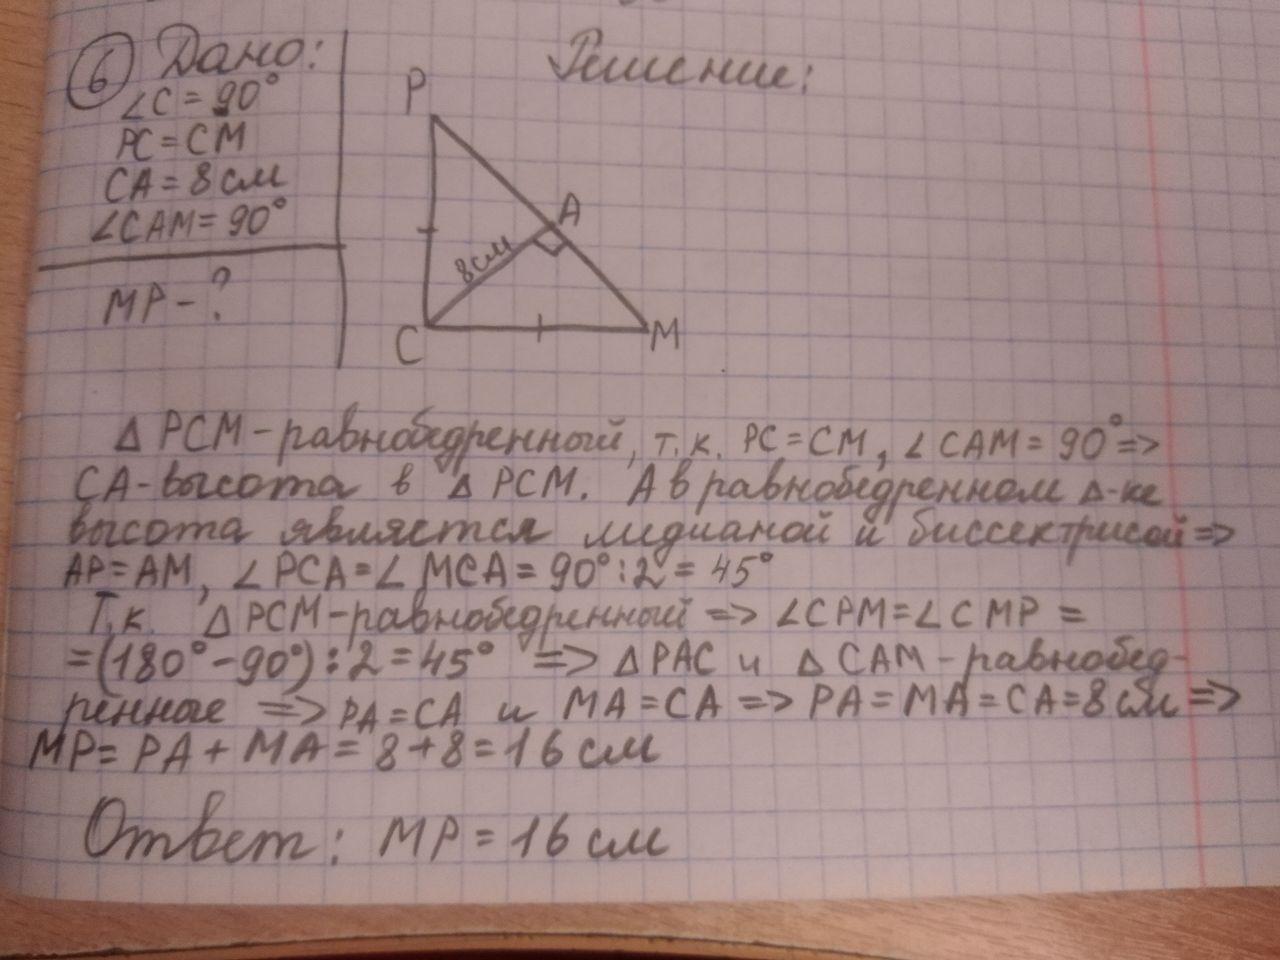 6 Дано:
∠C = 90°
PC = CM
CA = 8 см
∠CAM = 90°
MP - ?
Решение:
P
A
8 см
C
M
Δ PCM - равнобедренный, т.к. PC = CM, ∠CAM = 90° =>
CA - высота в Δ PCM. А в равнобедренном Δ-ке
высота является медианой и биссектрисой =>
AP = AM, ∠PCA = ∠MCA = 90° : 2 = 45°
Т.к. Δ PCM - равнобедренный => ∠CPM = ∠CMP =
= (180° - 90°) : 2 = 45° => Δ PAC и Δ CAM - равнобед-
ренные => PA = CA и MA = CA => PA = MA = CA = 8 см =>
MP = PA + MA = 8 + 8 = 16 см
Ответ: MP = 16 см